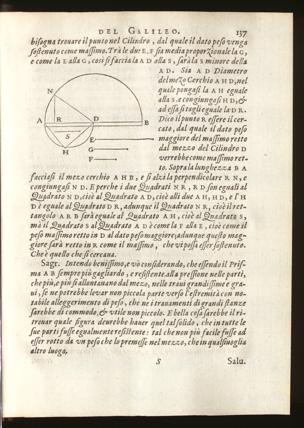 DEL GALILEO. 137
bisogna trouare il punto nel Cilindro, dal quale il dato peso venga
sostenuto come massimo. Trà le due E, F sia media proporzionale la G,
e come la E alla G, così si faccia la A D alla S, sarà la S minore della
A D. Sia A D Diametro
del mezo Cerchio A H D, nel
quale pongasi la A H eguale
alla S, e congiungasi H D, &
ad essa si tagli eguale la D R.
Dico il punto R essere il cer-
cato, dal quale il dato peso
maggiore del massimo retto
dal mezzo del Cilindro D
verrebbe come massimo ret-
to. Sopra la lunghezza B A
N
A R D B
S
H
E
G
F
facciasi il mezo cerchio A H B, e si alzi la perpendicolare R N, e
congiungasi N D. E perche i due Quadrati N R, R D son eguali al
Quadrato N D, cioè al Quadrato A D, cioè alli due A H, H D, e l' H
D è eguale al Quadrato D R, adunque il Quadrato N R, cioè il ret-
tangolo A R B sarà eguale al Quadrato A H, cioè al Quadrato S,
mà il Quadrato S al Quadrato A D è come la F alla E, cioè come il
peso massimo retto in D al dato peso maggiore; adunque questo mag-
giore sarà retto in R come il massimo, che vi possa esser sostenuto.
Che è quello che si cercaua.
Sagr. Intendo benissimo, e vò considerando, che essendo il Pris-
ma A B sempre più gagliardo, e resistente alla pressione nelle parti,
che più, e più si allontanano dal mezo, nelle traui grandissime e gra-
ui, se ne potrebbe leuar non piccola parte verso l'estremità con no-
tabile alleggerimento di peso, che ne i trauamenti di grandi stanze
sarebbe di commodo, & vtile non piccolo. E bella cosa sarebbe il ri-
trouar quale figura deurebbe hauer quel tal solido, che in tutte le
sue parti fusse egualmente resistente: tal che non più facile fusse ad
esser rotto da vn peso che lo premesse nel mezzo, che in qualsiuoglia
altro luogo.
S Salu.